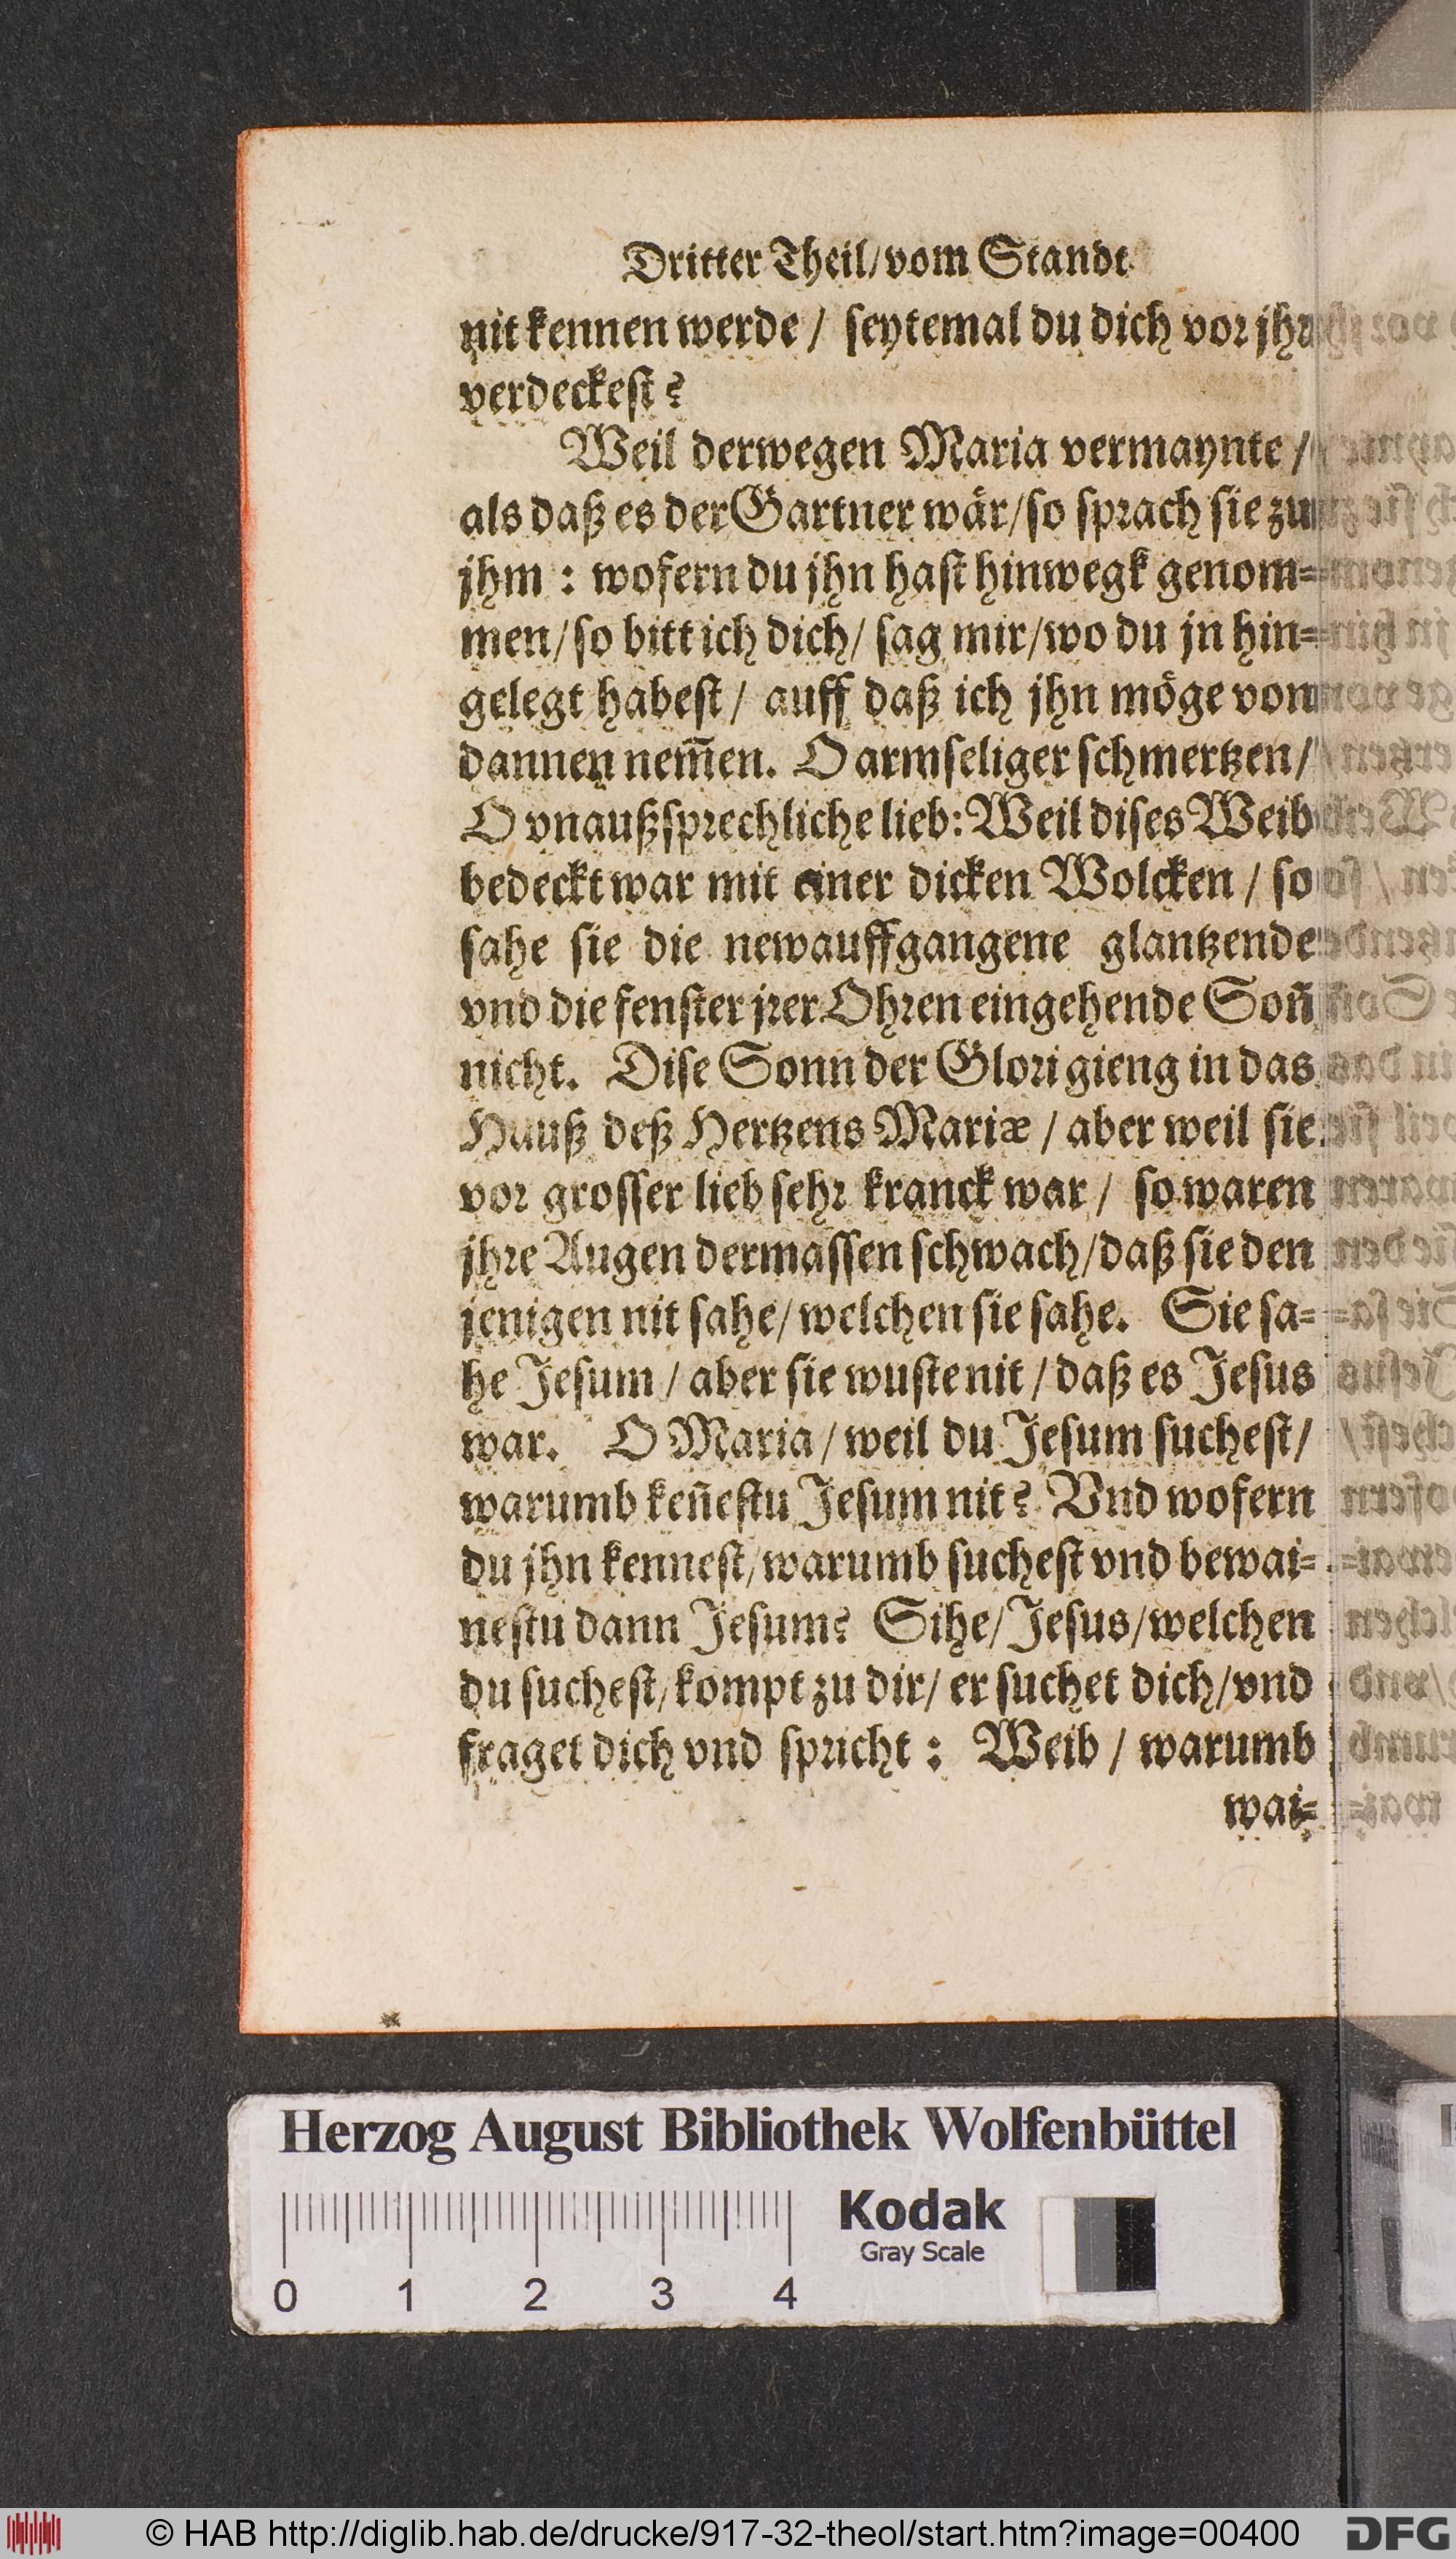 Dritter Theil/vom Standt
nit kennen werde / seytemal du dich vor jhr
verdeckest?
Weil derwegen Maria vermaynte /
als daß es der Gartner wär/so sprach sie zu
jhm : wofern du jhn hast hinwegk genom=
men/so bitt ich dich/ sag mir/wo du jn hin=
gelegt habest / auff daß ich jhn möge von
dannen nem̃en. O armseliger schmertzen/
O vnaußsprechliche lieb: Weil dises Weib
bedeckt war mit einer dicken Wolcken / so
sahe sie die newauffgangene glantzende
vnd die fenster jrer Ohren eingehende Soñ
nicht. Dise Sonn der Glori gieng in das
Hauß deß Hertzens Mariæ / aber weil sie
vor grosser lieb sehr kranck war / so waren
jhre Augen dermassen schwach/daß sie den
jenigen nit sahe/welchen sie sahe. Sie sa=
he Jesum / aber sie wuste nit / daß es Jesus
war. O Maria/ weil du Jesum suchest/
warumb keñestu Jesum nit? Vnd wofern
du jhn kennest/warumb suchest vnd bewai=
nestu dann Jesum? Sihe/Jesus/welchen
du suchest/kompt zu dir/ er suchet dich/vnd
fraget dich vnd spricht : Weib / warumb
wai=
Herzog August Bibliothek Wolfenbüttel
Kodak
Gray Scale
0 1 2 3 4
© HAB http://diglib.hab.de/drucke/917-32-theol/start.htm?image=00400
DFG